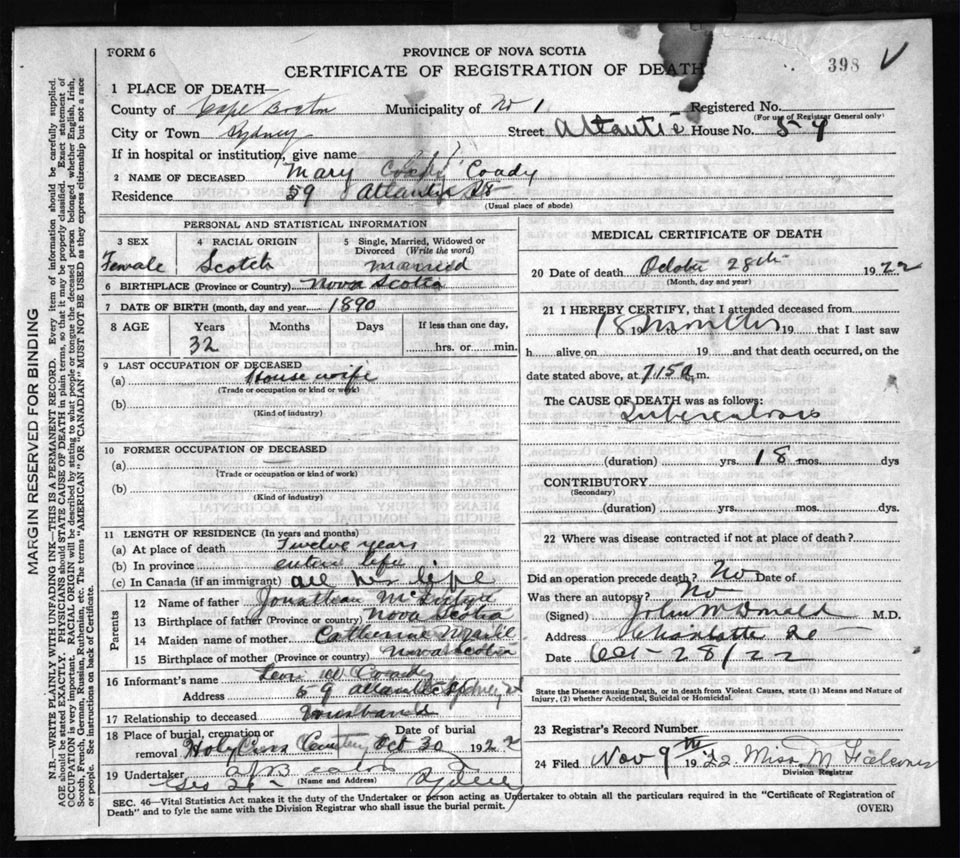 FORM 6
PROVINCE OF NOVA SCOTIA
CERTIFICATE OF REGISTRATION OF DEATH
398 V
1 PLACE OF DEATH—
County of Cape Breton Municipality of No 1 Registered No.
(For use of Registrar General only)
City or Town Sydney Street Atlantic House No. 59
If in hospital or institution, give name
2 NAME OF DECEASED Mary Coady
Residence 59 Atlantic St
(Usual place of abode)
PERSONAL AND STATISTICAL INFORMATION
3 SEX 4 RACIAL ORIGIN 5 Single, Married, Widowed or Divorced (Write the word)
Female Scotch Married
6 BIRTHPLACE (Province or Country) Nova Scotia
7 DATE OF BIRTH (month, day and year) 1890
8 AGE Years Months Days If less than one day,
32 hrs. or min.
9 LAST OCCUPATION OF DECEASED
(a) House wife
(Trade or occupation or kind or work)
(b)
(Kind of industry)
10 FORMER OCCUPATION OF DECEASED
(a)
(Trade or occupation or kind of work)
(b)
(Kind of industry)
11 LENGTH OF RESIDENCE (In years and months)
(a) At place of death Twelve years
(b) In province entire life
(c) In Canada (if an immigrant) all her life
Parents
12 Name of father Jonathan
13 Birthplace of father (Province or country) Nova Scotia
14 Maiden name of mother Catherine
15 Birthplace of mother (Province or country) Nova Scotia
16 Informant's name Leon W Coady
Address 59 Atlantic St Sydney
17 Relationship to deceased Husband
18 Place of burial, cremation or removal Holy Cross Cemetery Date of burial Oct 30 1922
19 Undertaker A J Beaton
(Name and Address)
Sydney
MEDICAL CERTIFICATE OF DEATH
20 Date of death October 28th 1922
(Month, day and year)
21 I HEREBY CERTIFY, that I attended deceased from
18 Months 19 19 that I last saw
h alive on 19 and that death occurred, on the
date stated above, at 7.15 a.m.
The CAUSE OF DEATH was as follows:
Tuberculosis
(duration) yrs. 18 mos. dys
CONTRIBUTORY
(Secondary)
(duration) yrs. mos. dys.
22 Where was disease contracted if not at place of death?
Did an operation precede death? No Date of
Was there an autopsy? No
(Signed) John McDonald M.D.
Address Charlotte St
Date Oct-28/22
State the Disease causing Death, or in death from Violent Causes, state (1) Means and Nature of Injury, (2) whether Accidental, Suicidal or Homicidal.
23 Registrar's Record Number
24 Filed Nov 9th 1922 Miss M
Division Registrar
SEC. 46—Vital Statistics Act makes it the duty of the Undertaker or person acting as Undertaker to obtain all the particulars required in the "Certificate of Registration of
Death" and to fyle the same with the Division Registrar who shall issue the burial permit.
(OVER)
MARGIN RESERVED FOR BINDING
N.B.—WRITE PLAINLY WITH UNFADING INK—THIS IS A PERMANENT RECORD. Every item of information should be carefully supplied.
AGE should be stated EXACTLY. PHYSICIANS should STATE CAUSE OF DEATH in plain terms, so that it may be properly classified. Exact statement of
OCCUPATION is very important. RACIAL ORIGIN will be described by stating to what people or tongue the deceased person belonged whether English, Irish,
Scotch, French, German, Russian, Ruthenian, etc. The terms "AMERICAN" OR "CANADIAN" MUST NOT BE USED as they express citizenship but not a race
or people. See instructions on back of Certificate.